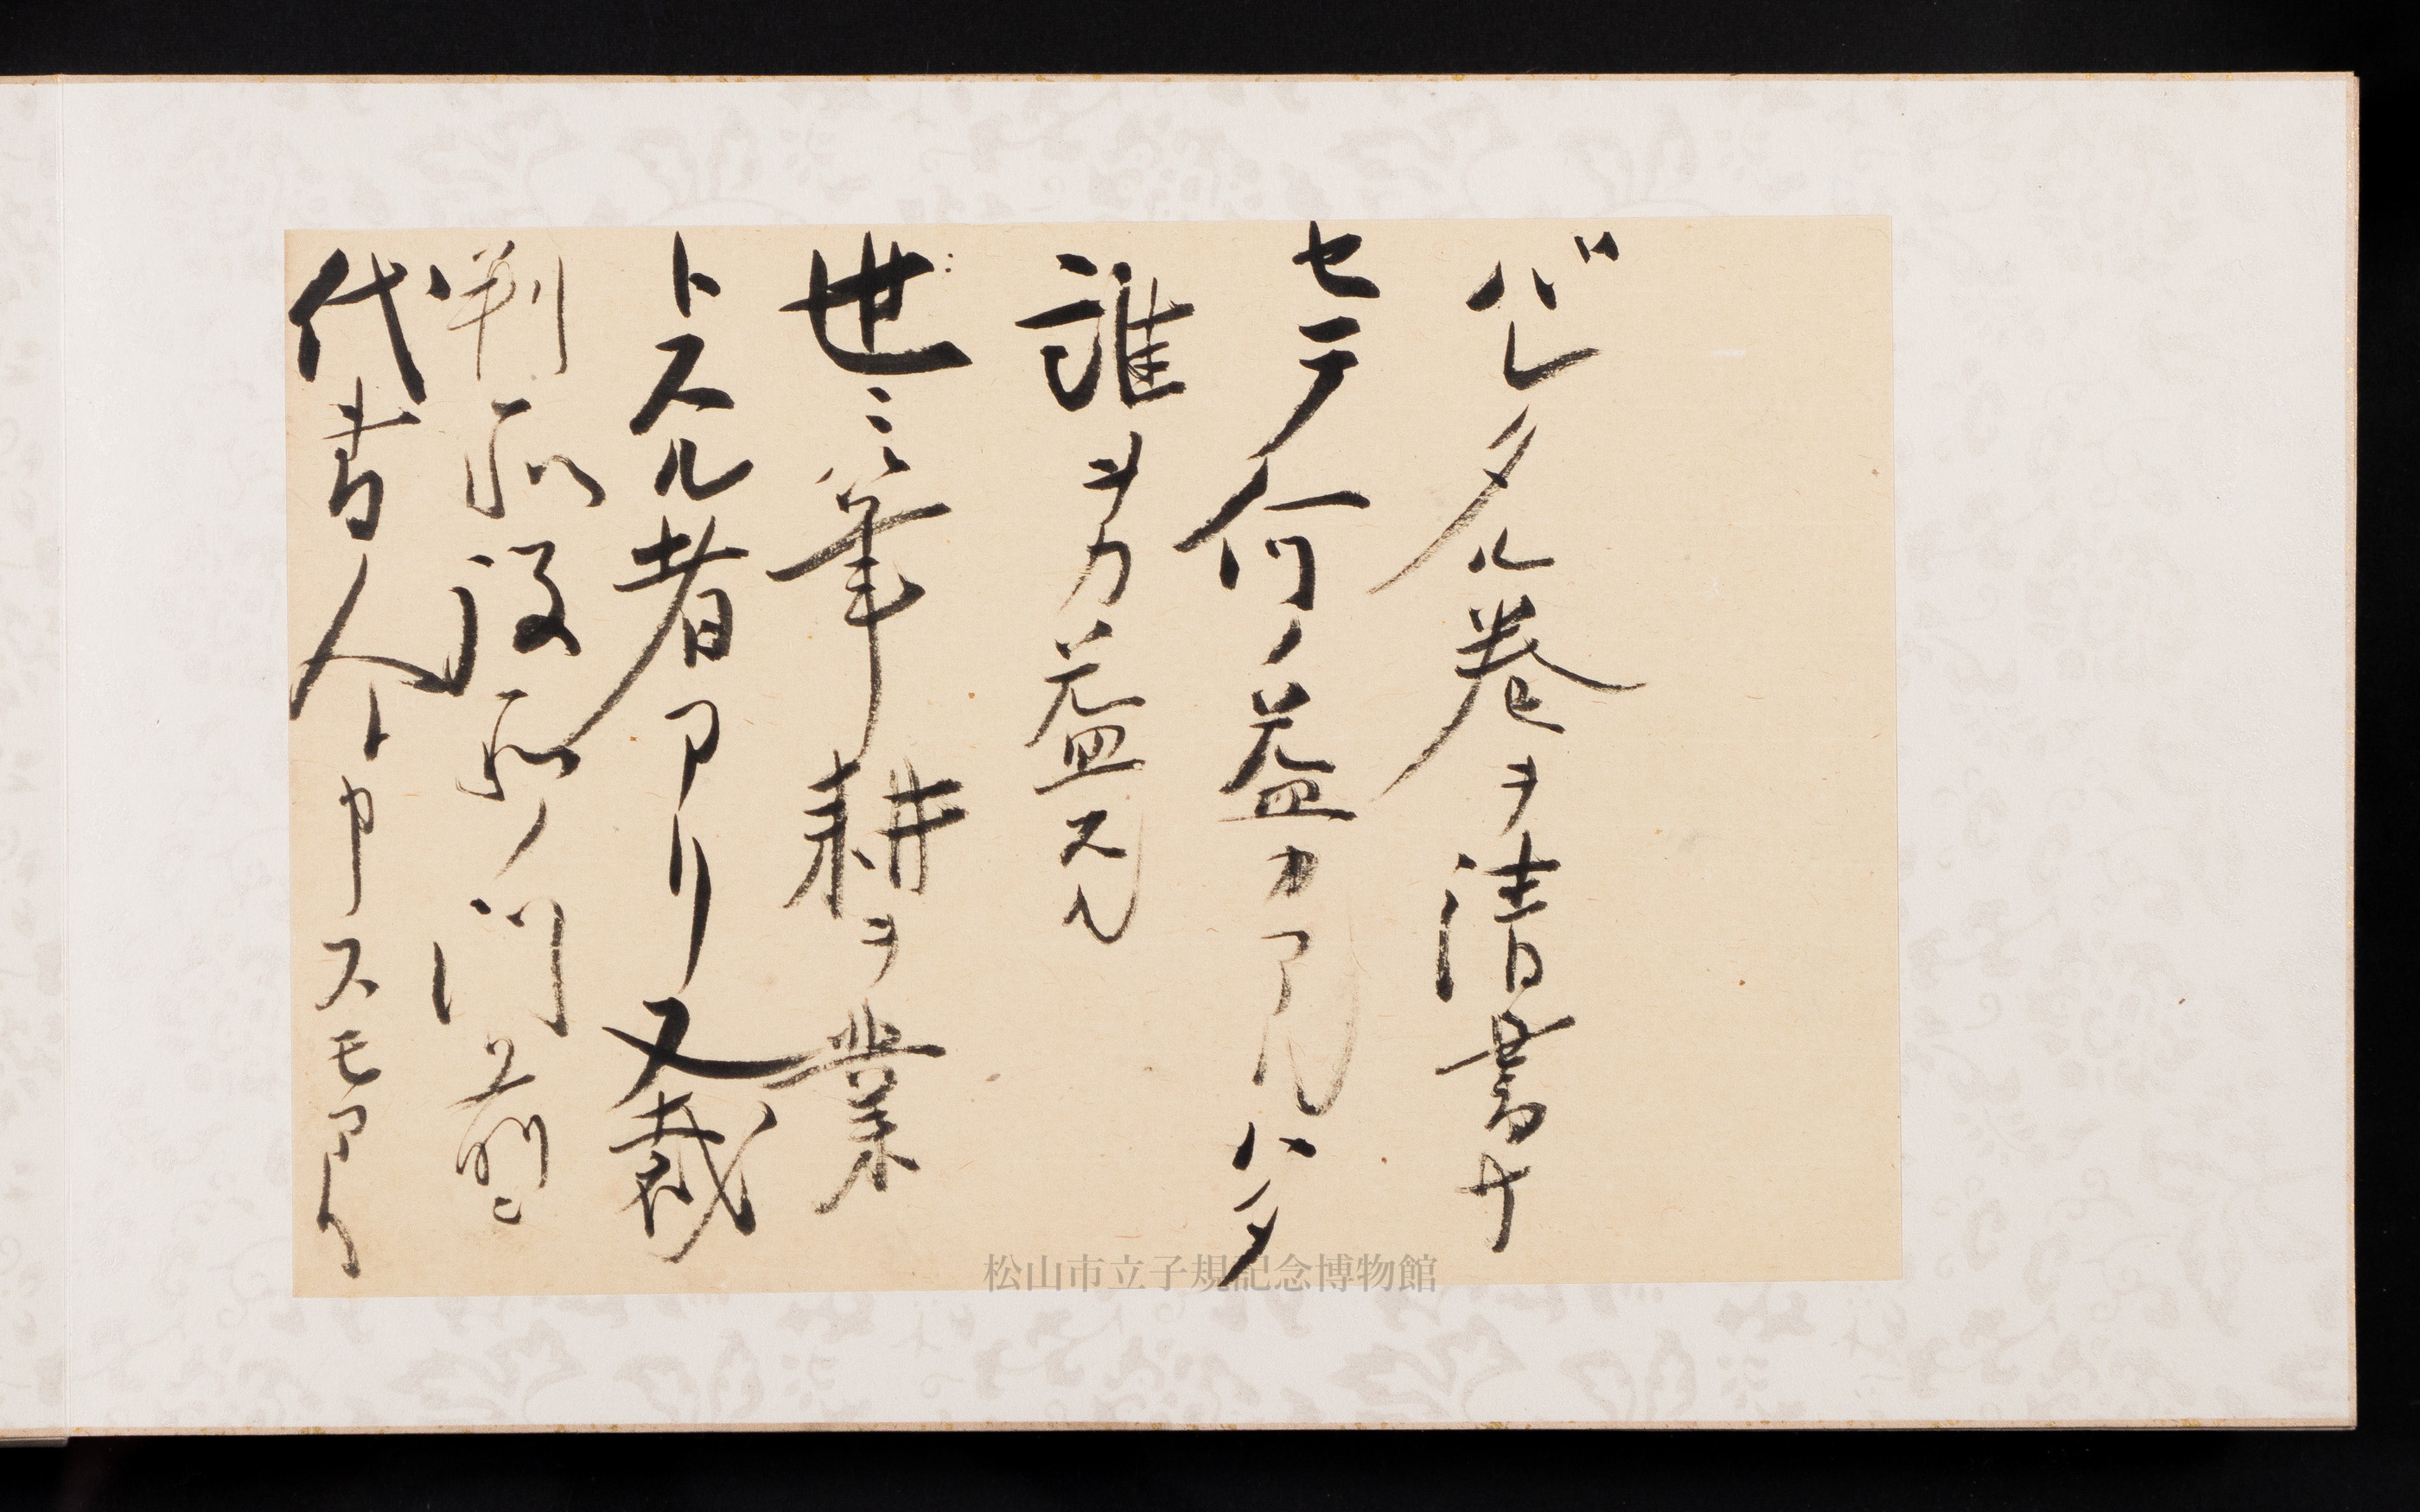 バレタル巻ヲ清書サ
セテ何ノ益カアルハタ
誰ヲカ益スル
世ニ筆耕ヲ業
トスル者アリ又裁
判所役所ノ門前ニ
代書人ト申スモアリ
松山市立子規記念博物館